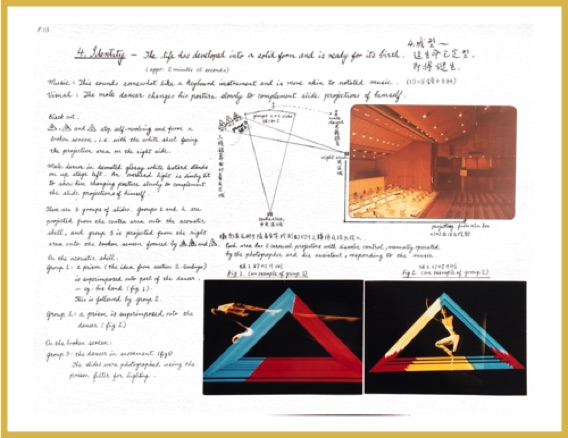 P.13
4. Identity — The life has developed into a solid form and is ready for its birth.
(appr. 2 minutes 15 seconds)
4. 成型～
這生命已定型,
即將誕生.
Music: This sounds somewhat like a keyboard instrument and is more akin to notated music.
Visual: The male dancer changes his posture slowly to complement slide projections of himself.
Black out.
and stop self-revolving and form a
broken screen, i.e. with the white sheet facing
the projection area on the right side.
Male dancer in leotard glossy white leotard stands
on up stage left. An overhead light is dimly lit
to show him changing posture slowly to complement
the slide projections of himself.
There are 3 groups of slides. Groups 1 and 2 are
projected from the centre area onto the acoustic
shell, and group 3 is projected from the right
area onto the broken screen formed by and
On the acoustic shell:
Group 1: a prism (the idea from section 2 Embryo)
is superimposed onto part of the dancer.
- eg: his hand (fig 1).
This is followed by group 2.
Group 2: a prism is superimposed onto the
dancer (fig 2)
On the broken screen:
group 3: the dancer in movement (fig 3)
The slides were photographed using the
prism filter for lighting.
groups 1 & 2 slides
right area
centre area
中央區域
projecting from the box
Each area has 2 carousel projectors with dissolve control, manually operated
by the photographer and his assistant, responding to the music.
Fig 1. (an example of group 1)
Fig 2. (an example of group 2)